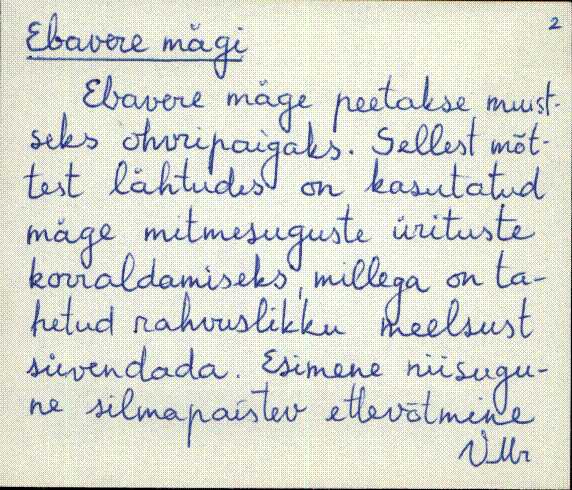 2
Ebavere mägi
Ebavere mäge peetakse muist-
seks ohvripaigaks. Sellest mõt-
test lähtudes on kasutatud
mäge mitmesuguste ürituste
korraldamiseks, millega on ta-
hetud rahvuslikku meelsust
süvendada. Esimene niisugu-
ne silmapaistev ettevõtmine